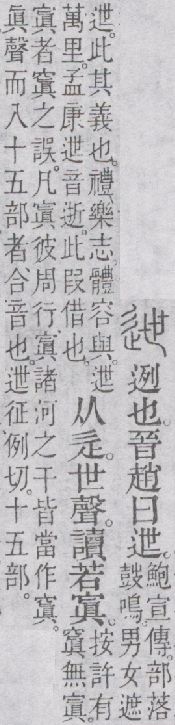 迣 迾也。晉趙曰迣。
鮑宣傳。部落
鼓鳴。男女遮
迣。此其義也。禮樂志。體容與。迣
萬里。孟康迣音逝此叚借也。
从辵。世聲。讀若寘。
按許有
窴無寘。
寘者窴之誤。凡寘彼周行、寘諸河之干皆當作窴。
眞聲而入十五部者合音也。迣征例切。十五部。